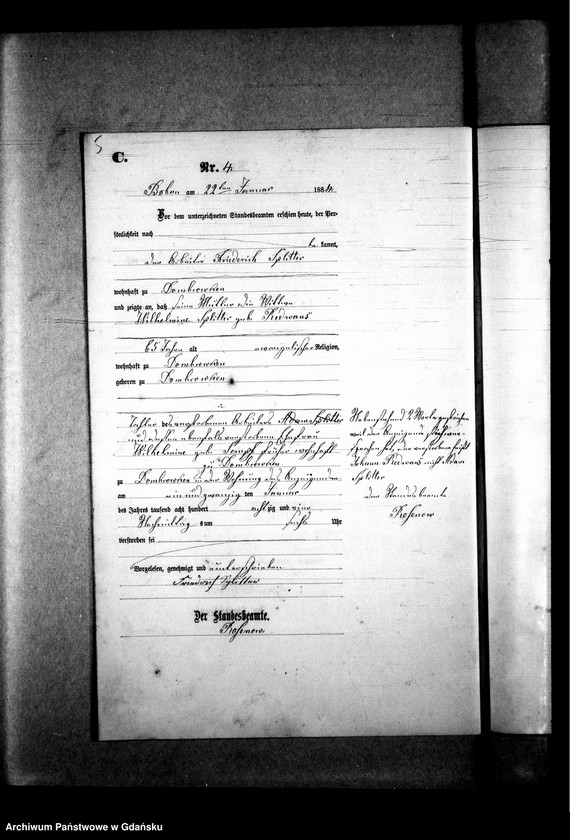 5
C.
Nr. 4.
am 22ten Januar 1884.
Vor dem unterzeichneten Standesbeamten erschien heute, der Per-
sönlichkeit nach
be kannt,
der Arbeiter Friederich Splitter
wohnhaft zu Dombrowken
und zeigte an, daß seine Mutter die Wittwe
Wilhelmine Splitter geb.
65 Jahre alt evangelischer Religion,
wohnhaft zu Dombrowken
geboren zu Dombrowken
Tochter des verstorbenen Arbeiters Adam Splitter
und dessen ebenfalls verstorbenen Ehefrau
Wilhelmine geb. früher wohnhaft
zu Dombrowken
zu Dombrowken in der Wohnung des Anzeigenden
am ein und zwanzig ten Januar
des Jahres tausend acht hundert achtzig und vier
Nachmittag s um sechs Uhr
verstorben sei
Vorgelesen, genehmigt und unterschrieben
Friedrich Splitter
Der Standesbeamte.
Rosenow.
Nebenstehend 2 Worte
mit der
der verstorbene heißt
Johann nicht Adam
Splitter
Der Standesbeamte
Rosenow
Archiwum Państwowe w Gdańsku